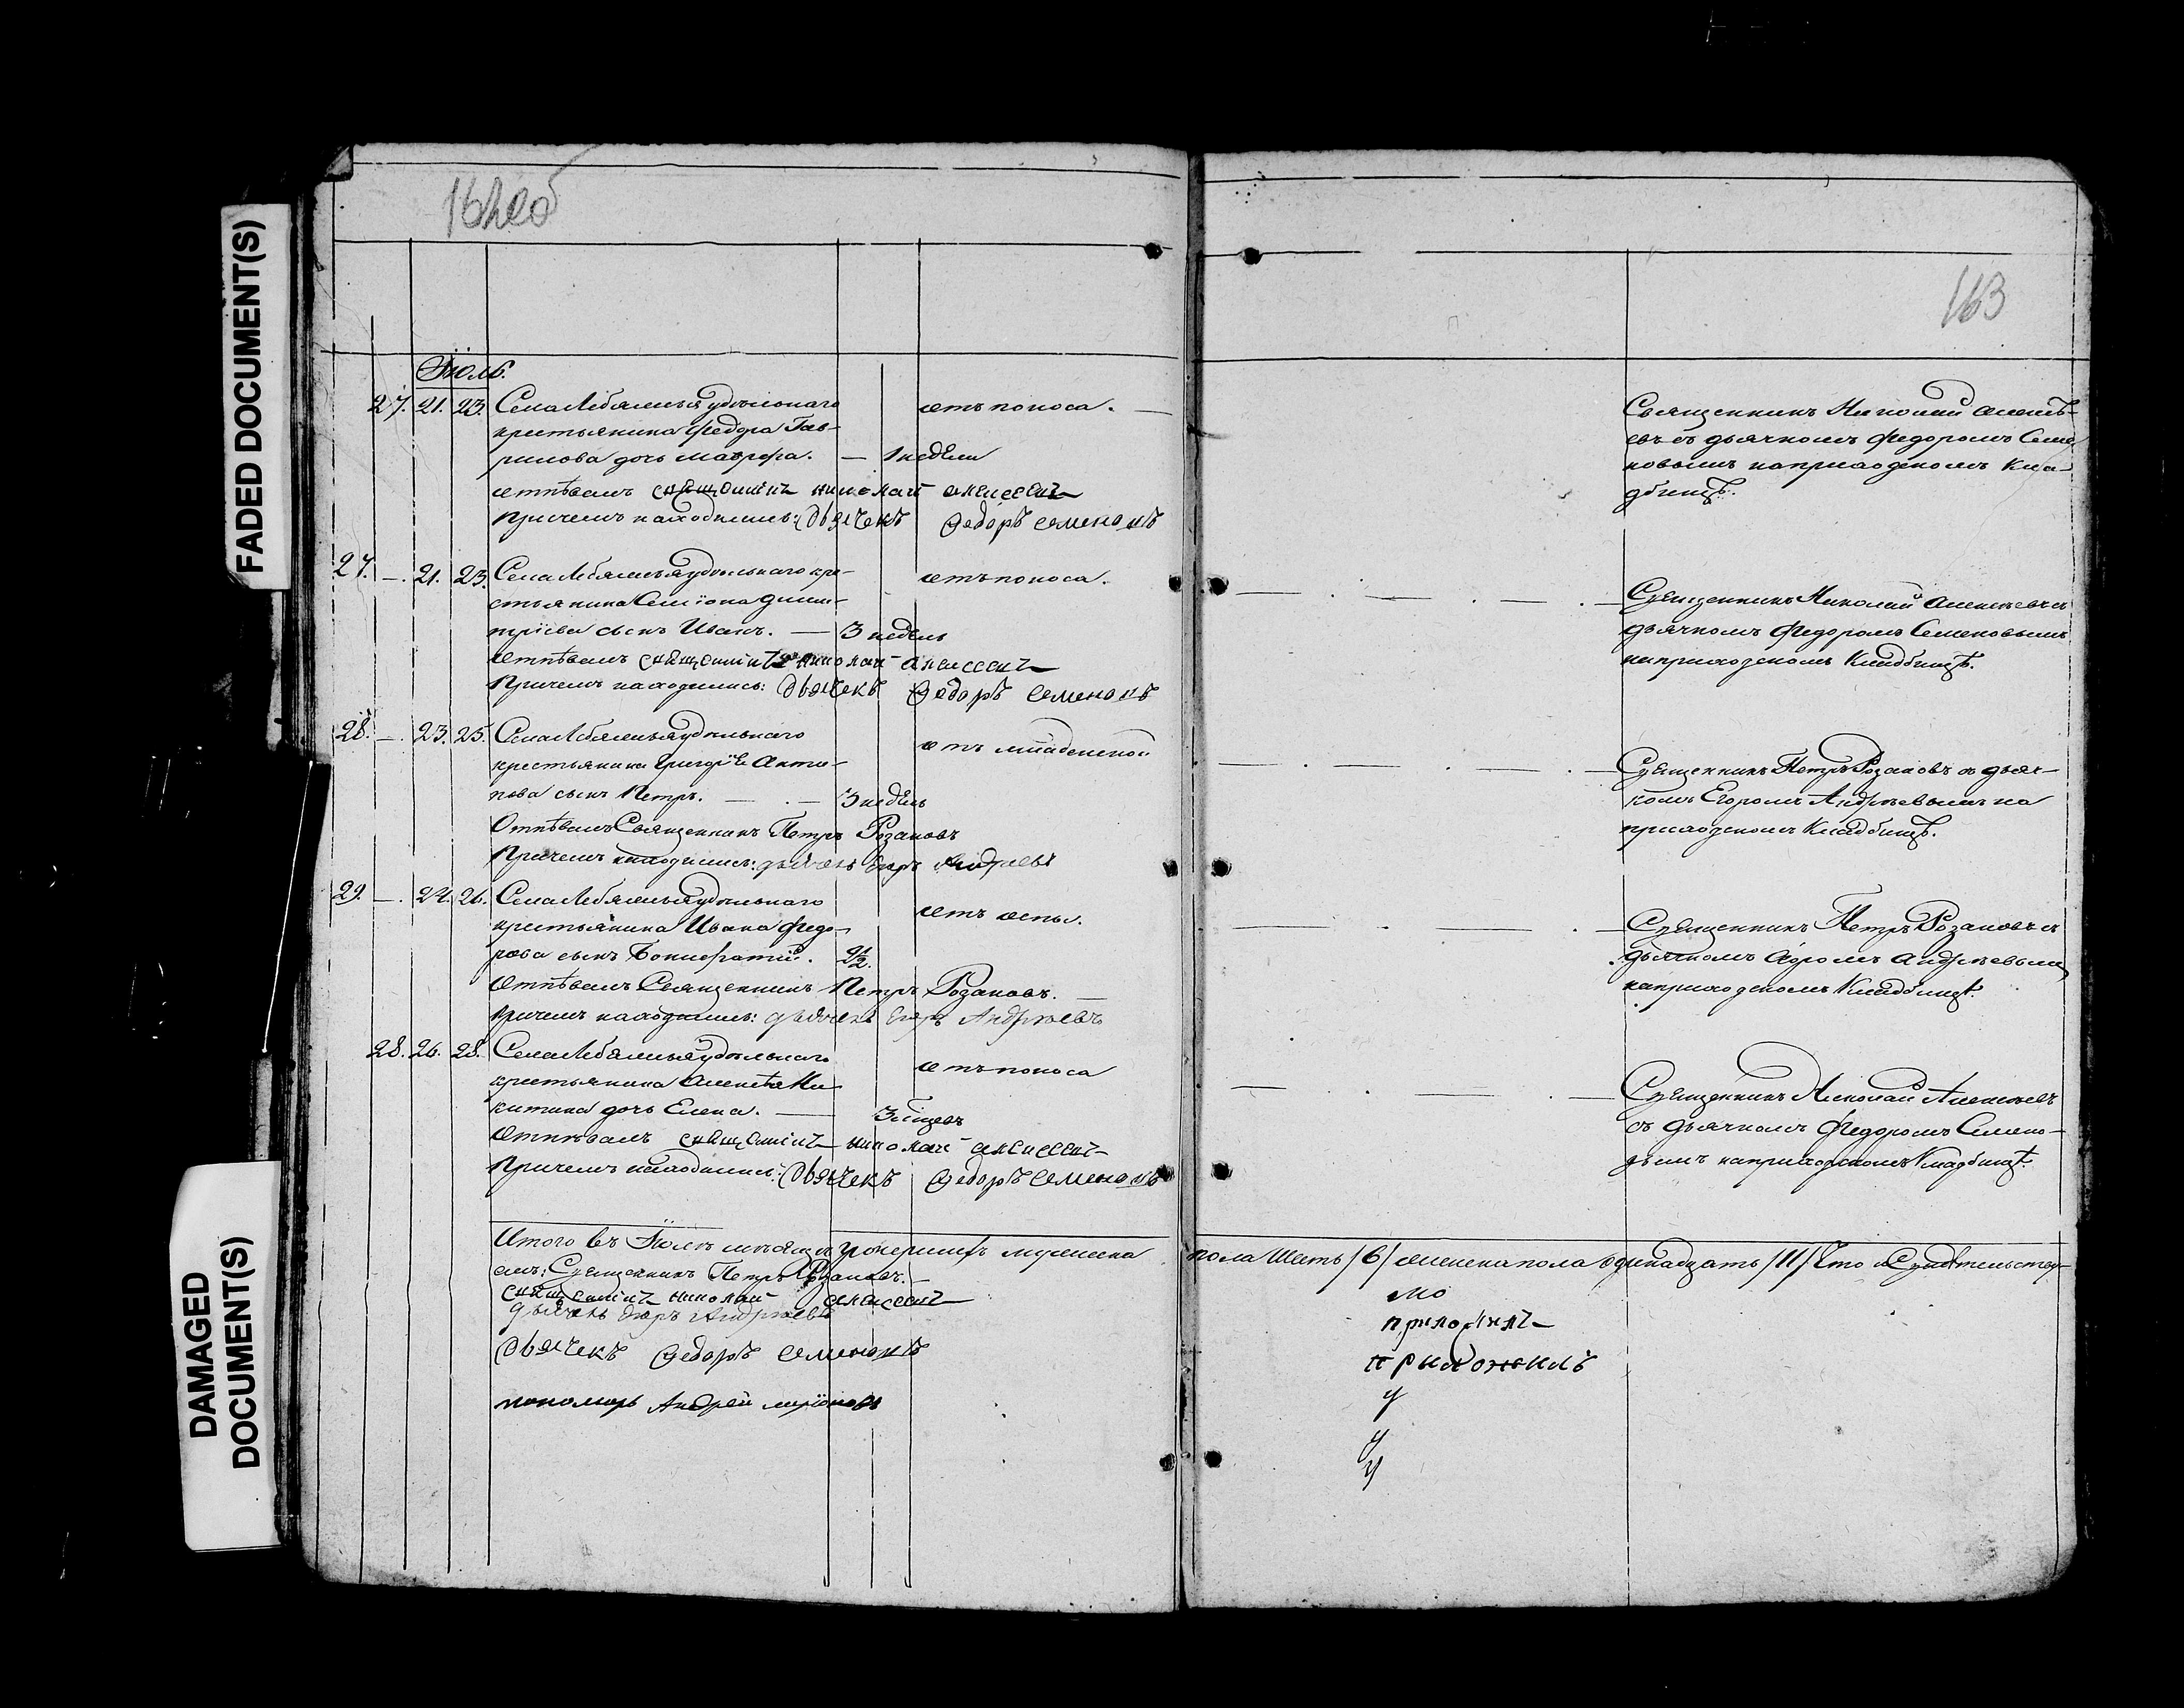 FADED DOCUMENT(S)
DAMAGED
DOCUMENT(S)
162 об
163
Іюль.
27. 21. 23. Села Лебяжья удѣльнаго
крестьянина Федора Гав-
рилова дочь Мавра. — 1 недѣли
отъ поноса. —
отпѣвалъ священникъ николай алексеевъ
Причемъ находились: дьячекъ Федоръ семеновъ
Священникъ Николай Алексѣ-
евъ съ дьячкомъ Федоромъ Семе
новымъ на приходскомъ Кла-
дбищѣ.
27. — 21. 23. Села Лебяжья удѣльнаго кре-
стьянина Семіона Дими-
тріева сынъ Иванъ. — 3 недѣль
отъ поноса.
отпѣвалъ священникъ николай алексеевъ
Причемъ находились: дьячекъ Федоръ семеновъ
Священникъ Николай Алексѣевъ съ
дьячкомъ Федоромъ Семеновымъ
на приходскомъ Кладбищѣ.
28. — 23. 25. Села Лебяжья удѣльнаго
крестьянина Григорія Анти-
пова сынъ Петръ. — . — 3 недѣль
отъ младенской
Отпѣвалъ Священникъ Петръ Розановъ
Причемъ находились: дьячекъ Егоръ Андреевъ
Священникъ Петръ Розановъ съ дьяч-
комъ Егоромъ Андрѣевымъ на
приходскомъ Кладбищѣ.
29. — 24. 26. Села Лебяжья удѣльнаго
крестьянина Ивана Федо-
рова сынъ Бонифатій. 2½.
отъ оспы.
Отпѣвалъ Священникъ Петръ Розановъ. —
Причемъ находились: дьячекъ Егоръ Андрѣевъ
Священникъ Петръ Розановъ съ
дьячкомъ Андрѣевымъ
на приходскомъ Кладбищѣ.
28. 26. 28. Села Лебяжья удѣльнаго
крестьянина Алексѣя Ни-
китина дочь Елена. —
отъ поноса
отпѣвалъ священникъ николай алексеевъ
Причемъ находились: дьячекъ Федоръ семеновъ
Священникъ Николай Алексѣевъ
съ дьячкомъ Федоромъ Семено-
вымъ на приходскомъ Кладбищѣ.
Итого въ Іюлѣ мѣсяцѣ умершихъ мужеска пола Шесть /6/ женска пола одинадцать /11/ Что и Свидѣтельству-
емъ: Священникъ Петръ Розановъ. —
священникъ николай алексеевъ
дьячекъ Егоръ Андрѣевъ
дьячекъ Федоръ семеновъ
пономарь Андрей
мо
приложилъ
у
у
у